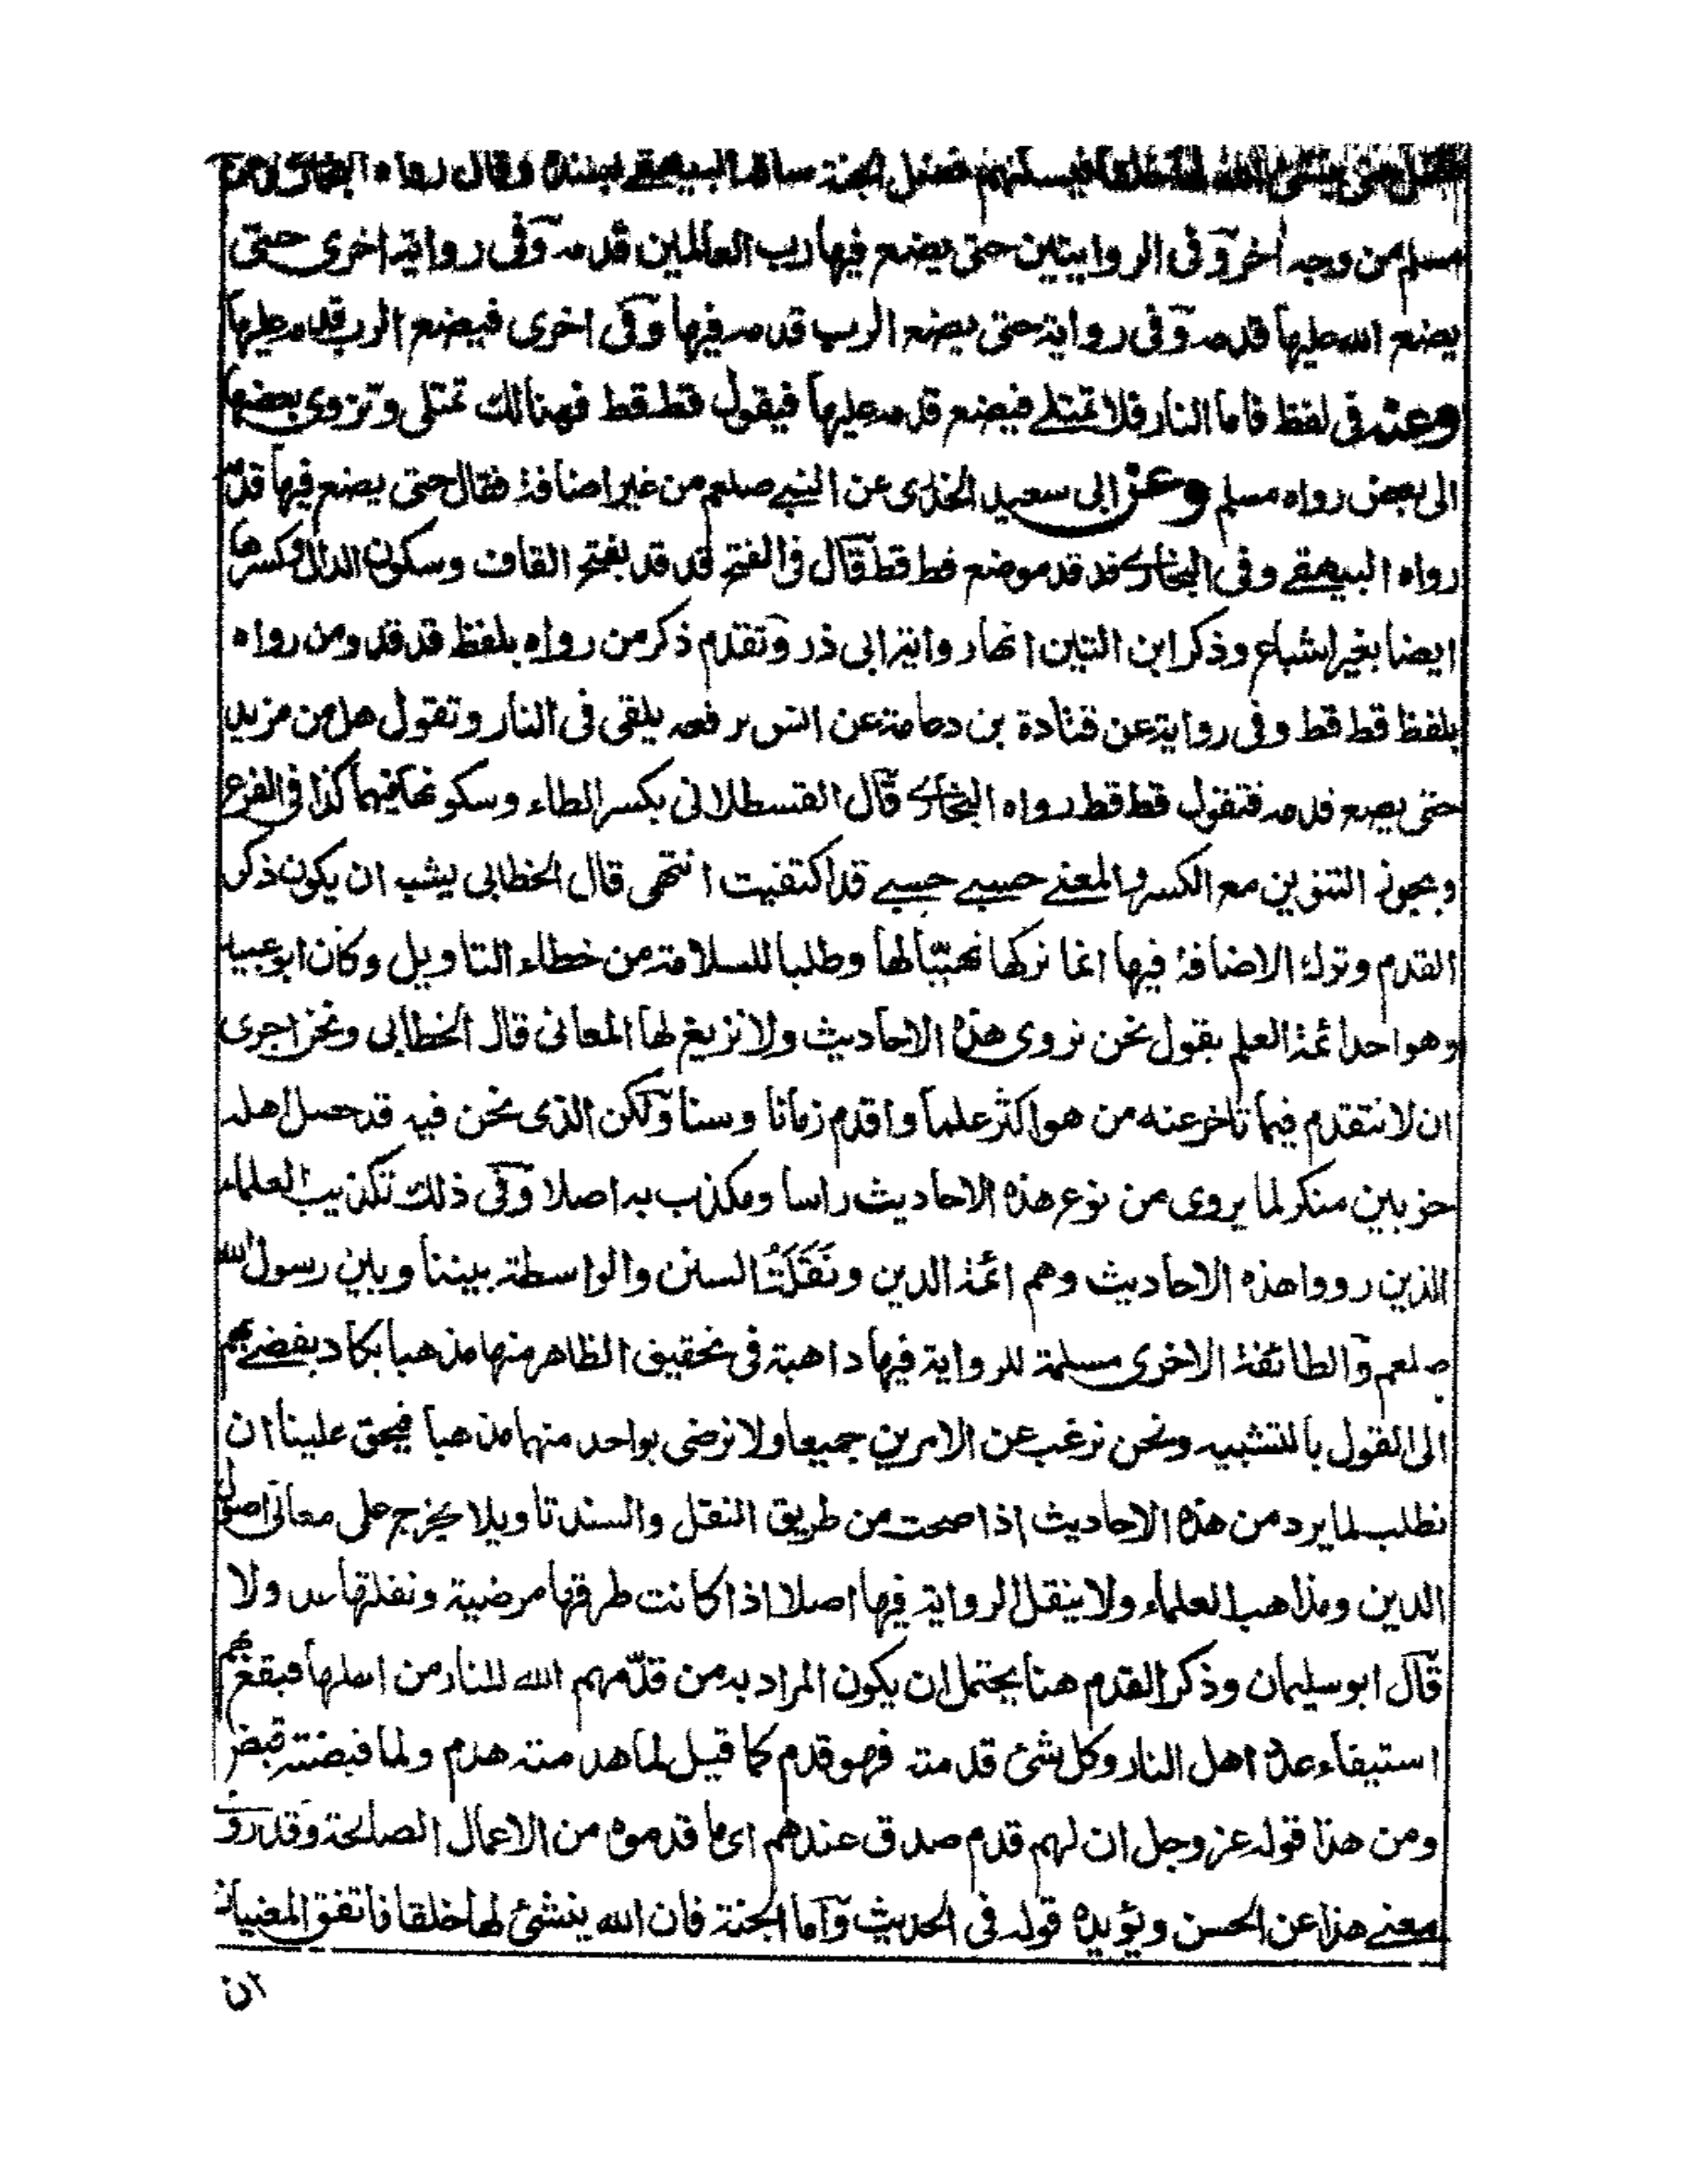 فضل حتى ينشئ الله لها خلقا فيسكنهم فضل الجنة ساقها البيهقے بسنده وقال رواه البخاری
مسلم من وجه اخر وفى الروايتين حتى يضع فيها رب العالمين قدمه وفى رواية اخرى حتى
يضع الله عليها قدمه وفى رواية حتى يضع الرب قدمه فيها وفى اخرى فيضع الرب قدمه عليها
وعنه فى لفظ فاما النار فلا تمتلے فيضع قدمه عليها فيقول قط قط فهنالك تمتلى وتزوى بعضها
الى بعض رواه مسلم وعن ابى سعيد الخدرى عن النبے صلعم من غير اضافة فقال حتى يضع فيها قدم
رواه البيهقے وفى البخارى قد قد موضع قط قط قال فى الفتح قد قد بفتح القاف وسكون الدال وكسرها
ايضا بغير اشباع وذكر ابن التين انها رواية ابى ذر وتقدم ذكر من رواه بلفظ قد قد ومن رواه
بلفظ قط قط وفى رواية عن قتادة بن دعامة عن انس يرفعه يلقى فى النار وتقول هل من مزيد
حتى يضع قدمه فتقول قط قط رواه البخارى قال القسطلانى بكسر الطاء وسكونها فيهما كذا فى الفرع
ويجوز التنوين مع الكسر والمعنے حسبے حسبے قد اكتفيت انتهى قال الخطابى يشبه ان يكون ذكر
القدم وترك الاضافة فيها انما تركها تهيّبا لها وطلبا للسلامة من خطاء التاويل وكان ابو عبيد
وهو احد ائمة العلم يقول نحن نروى هذه الاحاديث ولا نزيغ لها المعانى قال الخطابى ونحن اجرى
ان لا نتقدم فيما تاخر عنه من هو اكثر علما واقدم زمانا وسنا ولكن الذى نحن فيه قد حصل اهله
حزبين منكر لما يروى من نوع هذه الاحاديث راسا ومكذب به اصلا وفى ذلك تكذيب العلماء
الذين رووا هذه الاحاديث وهم ائمة الدين ونَقَلَتُ السنن والواسطة بيننا وبين رسول الله
صلعم والطائفة الاخرى مسلمة للرواية فيها ذاهبة فى تحقيق الظاهر منها مذهبا يكاد يفضے بهم
الى القول بالتشبيه ونحن نرغب عن الامرين جميعا ولا نرضى بواحد منهما مذهبا فيحق علينا ان
نطلب لما يرد من هذه الاحاديث اذا صحت من طريق النقل والسند تاويلا يخرج على معانى اصول
الدين ومذاهب العلماء ولا ينقل الرواية فيها اصلا اذا كانت طرقها مرضية ونقلتها عدولا
قال ابو سليمان وذكر القدم هنا يحتمل ان يكون المراد به من قدّمهم الله للنار من اهلها فيقع بهم
استيفاء عدة اهل النار وكل شئ قدمته فهو قدم كما قيل لما هدمته هدم ولما قبضته قبض
ومن هذا قوله عز وجل ان لهم قدم صدق عندهم اى ما قدموه من الاعمال الصالحة وقد روى
معنے هذا عن الحسن ويؤيده قوله فى الحديث واما الجنة فان الله ينشئ لها خلقا فاتفق المعنيان
ان